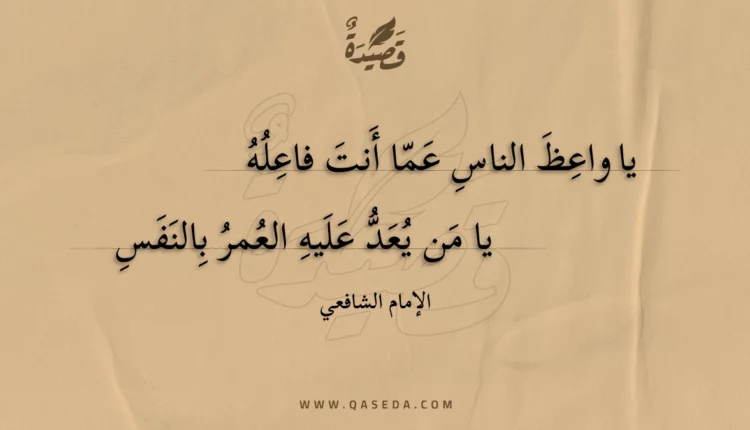 قَصِيدَةٌ
يا واعِظَ الناسِ عَمّا أَنتَ فاعِلُهُ
يا مَن يُعَدُّ عَلَيهِ العُمرُ بِالنَفَسِ
الإمام الشافعي
WWW.QASEDA.COM